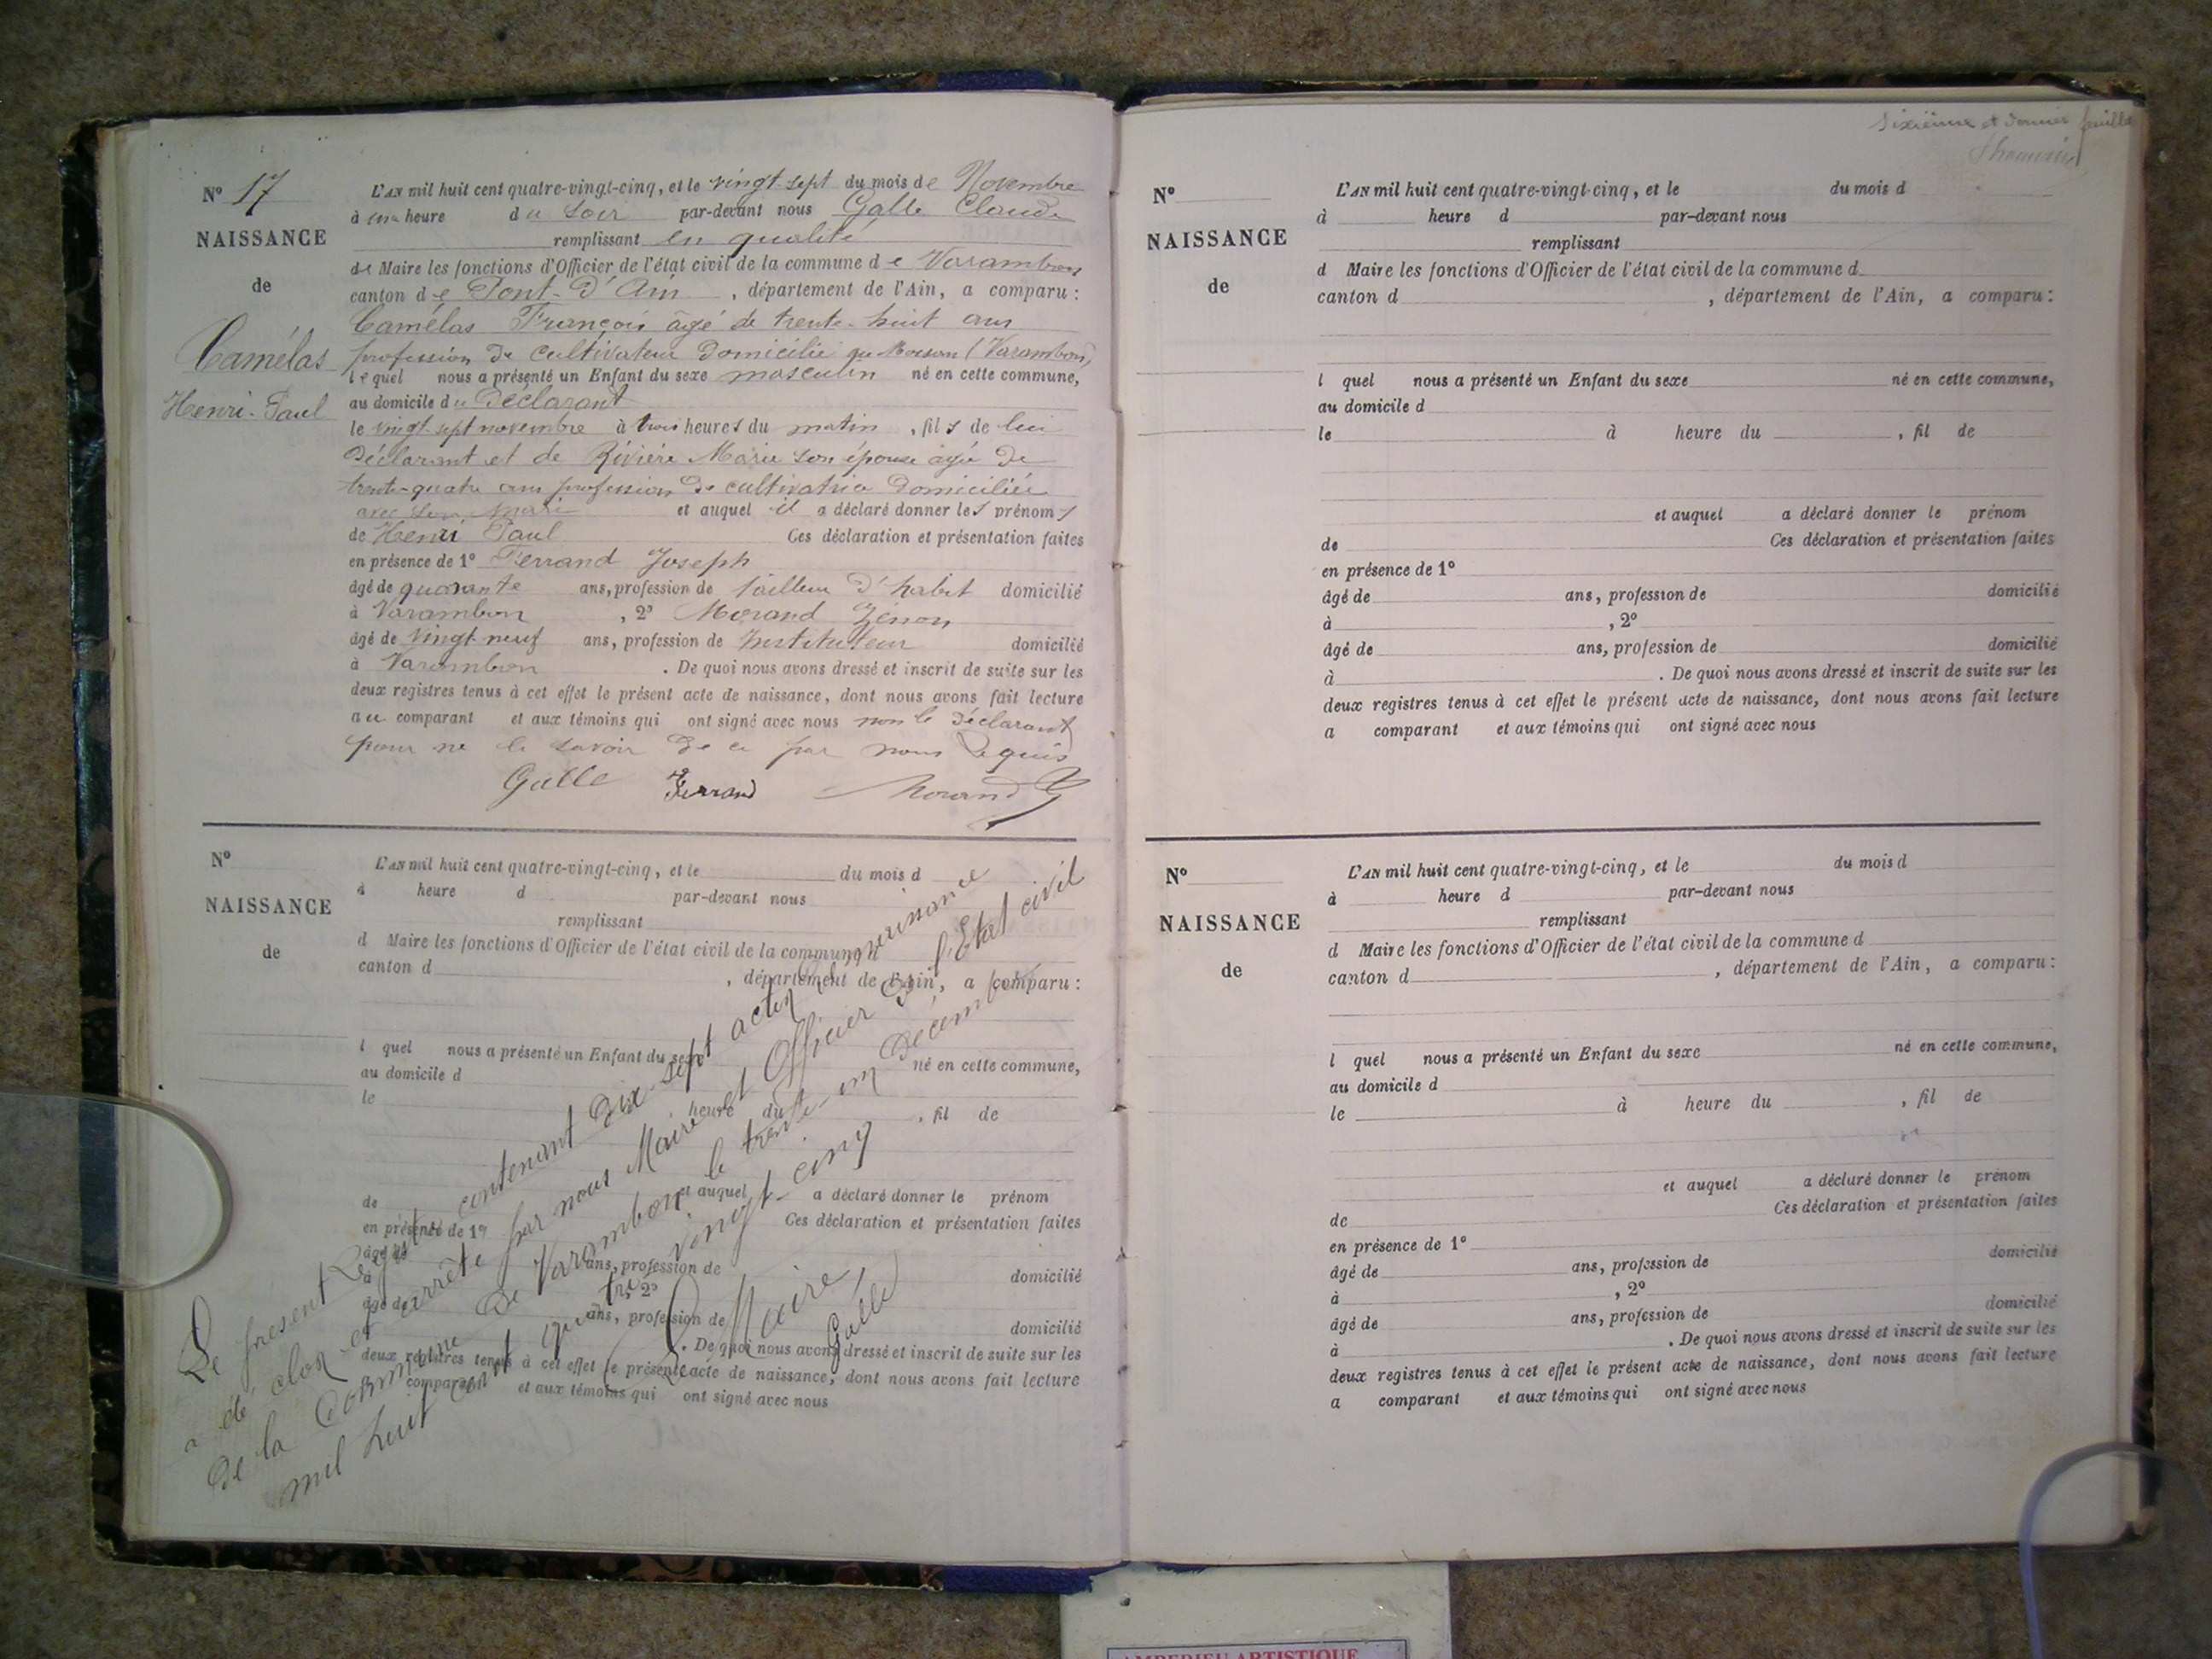 N° 17
NAISSANCE
de
Camélas
Henri-Paul
L'AN mil huit cent quatre-vingt-cinq, et le vingt-sept du mois de Novembre
à une heure du Soir par-devant nous Galle Claude
remplissant en qualité
de Maire les fonctions d'Officier de l'état civil de la commune de Varambon
canton de Pont-d'Ain, département de l'Ain, a comparu :
Camélas François âgé de trente-huit ans
profession de cultivateur domicilié au (Varambon)
lequel nous a présenté un Enfant du sexe masculin né en cette commune,
au domicile du Déclarant
le vingt-sept novembre à trois heures du matin, fils de lui
Déclarant et de Rivière Marie son épouse âgée de
trente-quatre ans profession de cultivatrice domiciliée
avec son mari et auquel il a déclaré donner les prénoms
de Henri Paul Ces déclaration et présentation faites
en présence de 1° Ferrand Joseph
âgé de quarante ans, profession de tailleur d'habit domicilié
à Varambon, 2° Morand Zénon
âgé de vingt neuf ans, profession de Instituteur domicilié
à Varambon. De quoi nous avons dressé et inscrit de suite sur les
deux registres tenus à cet effet le présent acte de naissance, dont nous avons fait lecture
au comparant et aux témoins qui ont signé avec nous non le déclarant
pour ne le savoir de ce par nous requis
Galle Ferrand Morand Z
N°
NAISSANCE
de
L'AN mil huit cent quatre-vingt-cinq, et le du mois d
à heure d par-devant nous
remplissant
d Maire les fonctions d'Officier de l'état civil de la commune d
canton d , département de l'Ain, a comparu :
l quel nous a présenté un Enfant du sexe né en cette commune,
au domicile d
le heure du , fil de
et auquel a déclaré donner le prénom
de Ces déclaration et présentation faites
en présence de 1°
âgé de ans, profession de domicilié
à , 2°
âgé de ans, profession de domicilié
à . De quoi nous avons dressé et inscrit de suite sur les
deux registres tenus à cet effet le présent acte de naissance, dont nous avons fait lecture
comparant et aux témoins qui ont signé avec nous
Le présent Registre contenant dix-sept actes de naissance
a été clos et arrêté par nous Maire et Officier de l'Etat civil
de la Commune de Varambon, le trente-un Décembre
mil huit cent quatre vingt-cinq
Le Maire,
Galle
Sixième et dernier feuille
N°
NAISSANCE
de
L'AN mil huit cent quatre-vingt-cinq, et le du mois d
à heure d par-devant nous
remplissant
d Maire les fonctions d'Officier de l'état civil de la commune d
canton d , département de l'Ain, a comparu :
l quel nous a présenté un Enfant du sexe né en cette commune,
au domicile d
le à heure du , fil de
et auquel a déclaré donner le prénom
de Ces déclaration et présentation faites
en présence de 1°
âgé de ans, profession de domicilié
à , 2°
âgé de ans, profession de domicilié
à . De quoi nous avons dressé et inscrit de suite sur les
deux registres tenus à cet effet le présent acte de naissance, dont nous avons fait lecture
a comparant et aux témoins qui ont signé avec nous
N°
NAISSANCE
de
L'AN mil huit cent quatre-vingt-cinq, et le du mois d
à heure d par-devant nous
remplissant
d Maire les fonctions d'Officier de l'état civil de la commune d
canton d , département de l'Ain, a comparu :
l quel nous a présenté un Enfant du sexe né en cette commune,
au domicile d
le à heure du , fil de
et auquel a déclaré donner le prénom
de Ces déclaration et présentation faites
en présence de 1°
âgé de ans, profession de domicilié
à , 2°
âgé de ans, profession de domicilié
à . De quoi nous avons dressé et inscrit de suite sur les
deux registres tenus à cet effet le présent acte de naissance, dont nous avons fait lecture
a comparant et aux témoins qui ont signé avec nous
AMBERIEU ARTISTIQUE